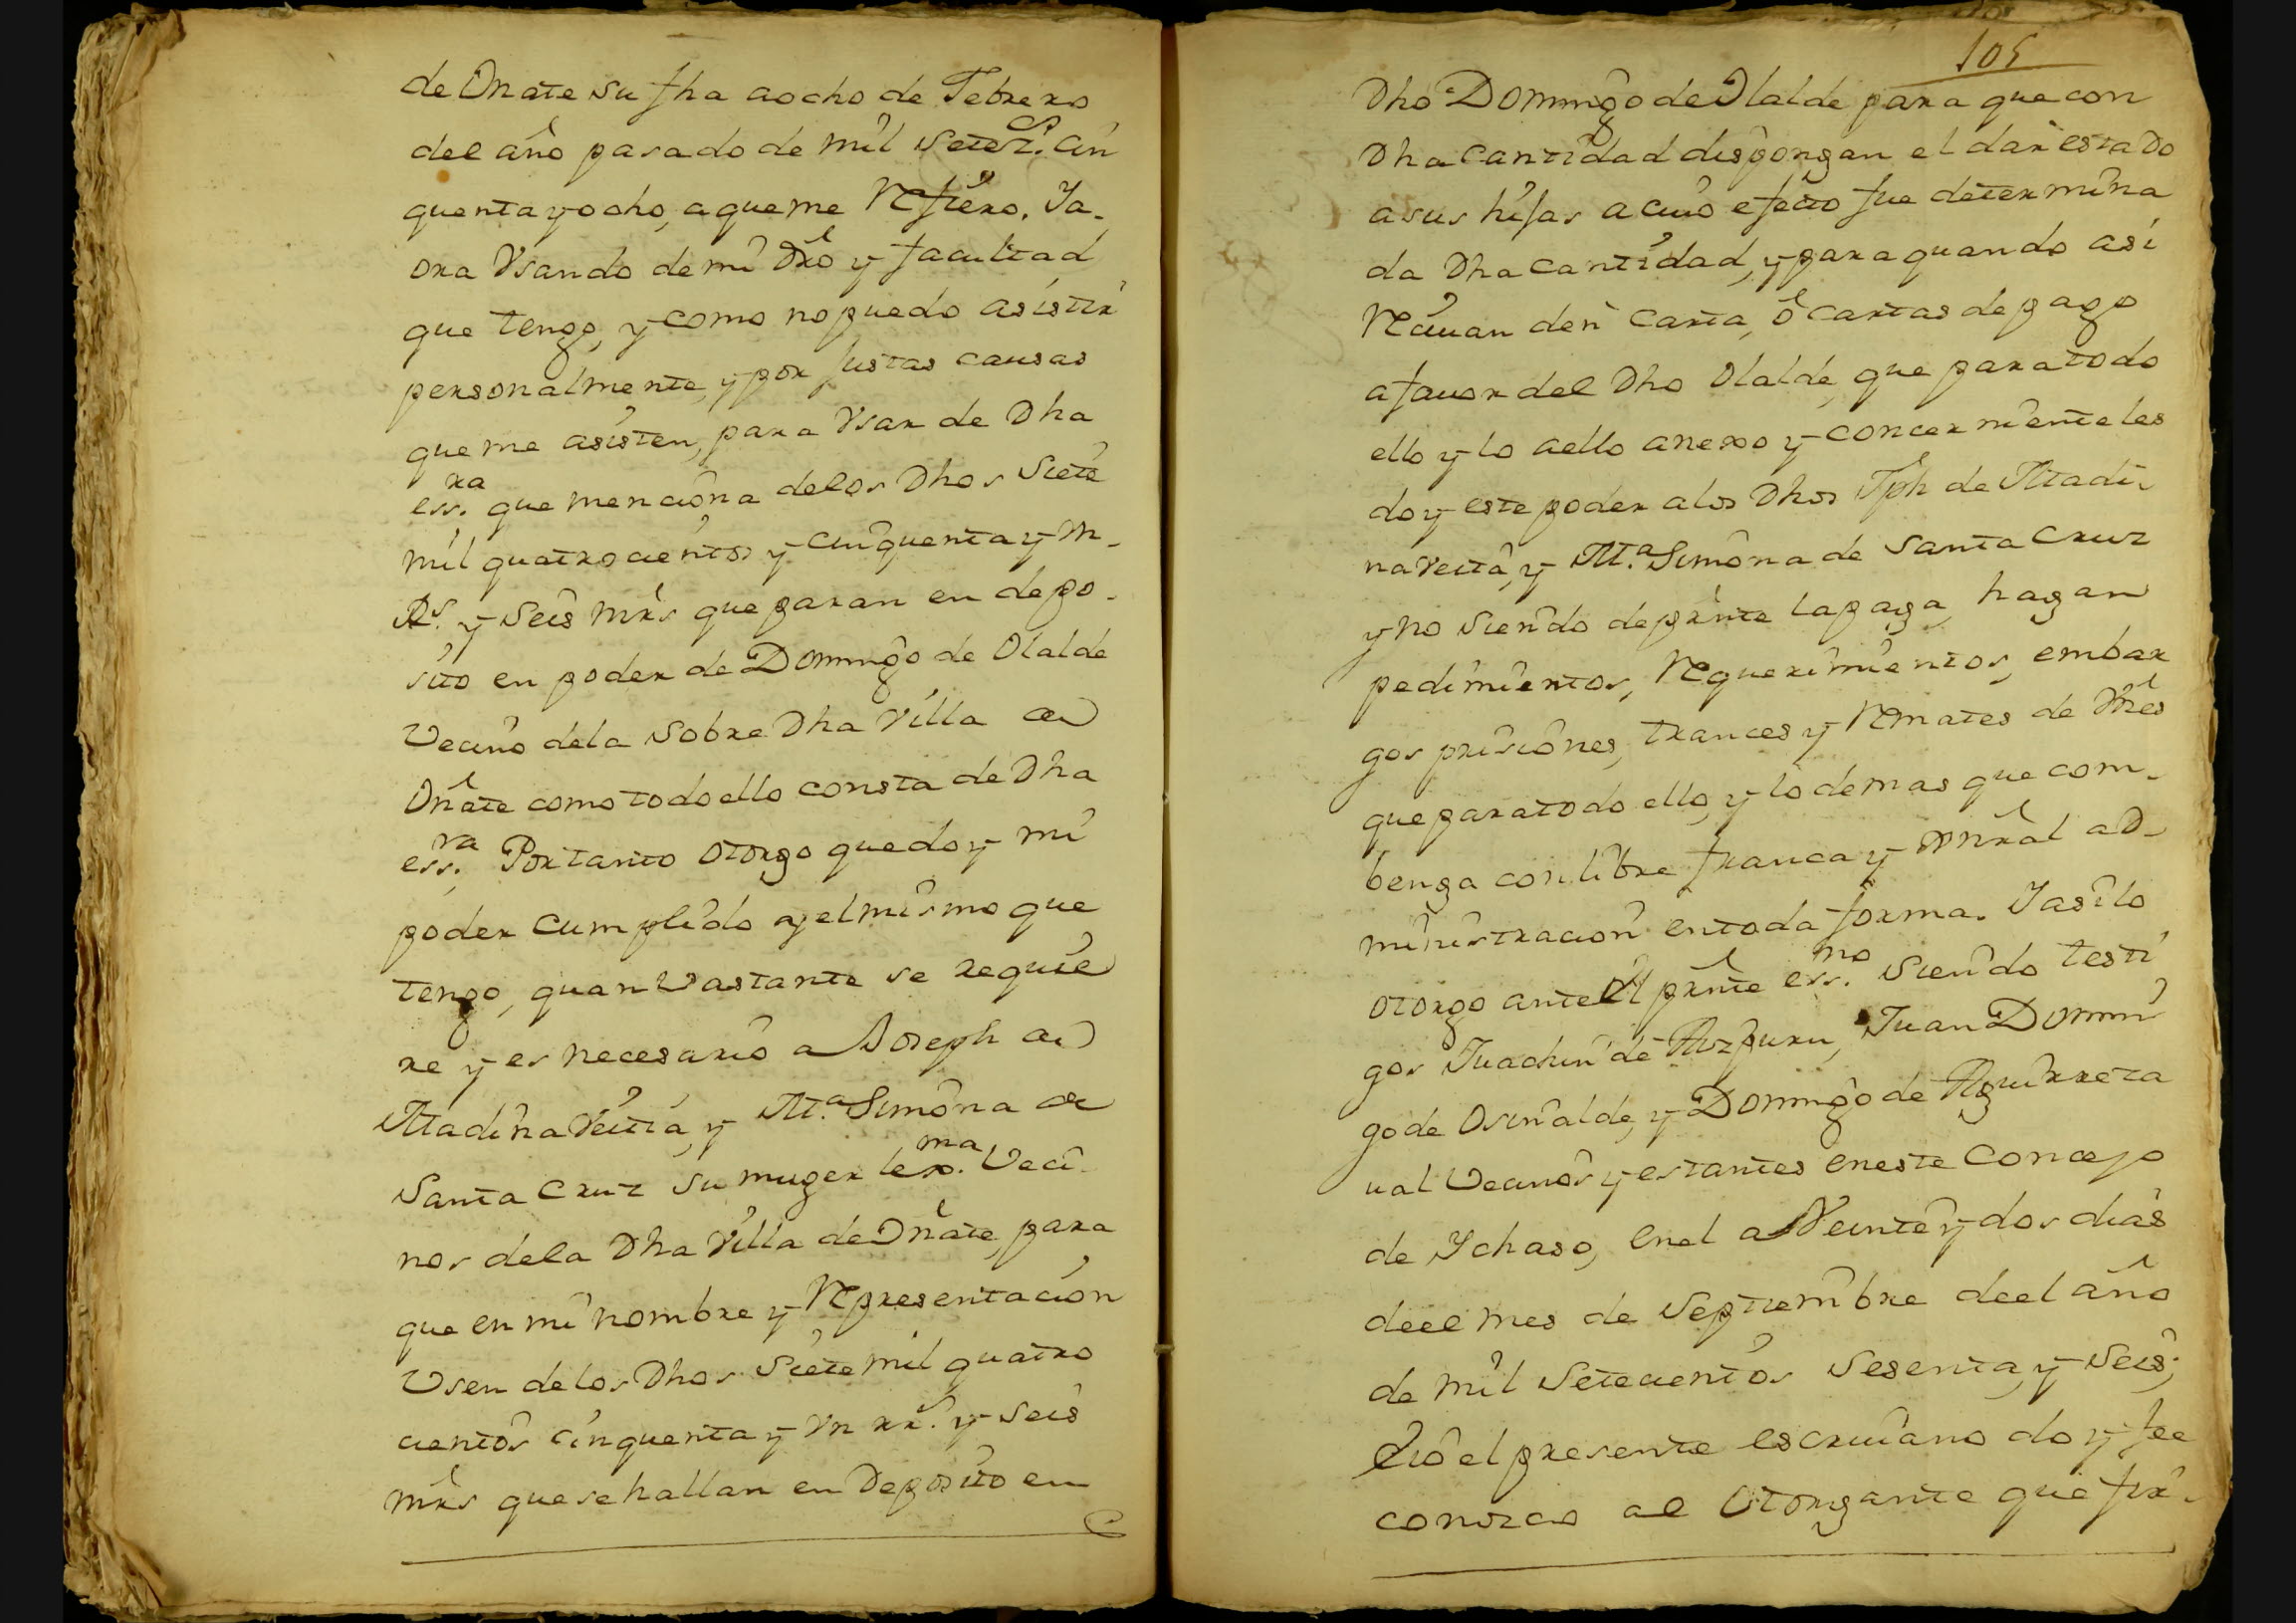 de Oñate su fha a ocho de Febrero
del año pasado de mil setez.s cin
quenta y ocho, a que me refiero. Ya-
ora Vsando de mi dro y facultad
que tengo, y como no puedo asistir
personalmente, y por justas causas
que me asisten, para Vsar de Dha
ess.ra que menciona delos Dhos siete
mil quatrocientos y cinquenta y vn
Rs. y seis mrs que paran en depo-
sito en poder de Domingo de Olalde
Vecino dela sobre Dha Villa de
Oñate como todo ello consta de Dha
ess.ra Por tanto otorgo que doy mi
poder cumplido y el mismo que
tengo, quan Vastante se requie
re y es necesario a Joseph de
MadinaVeitia, y M.a Simona de
Santa Cruz su muger lex.ma Veci-
nos dela Dha Villa de Oñate, para
que en mi nombre y Representacion
Vsen delos Dhos siete mil quatro
cientos cinquenta y vn rr.s y seis
mrs que se hallan en Deposito en
105
Dho Domingo de Olalde para que con
Dha cantidad dispongan el dar estado
a sus hijas a cuio efecto fue determina
da Dha cantidad, y para quando asi
Reciuan den carta, ô cartas de pago
a fauor del Dho Olalde, que para todo
ello y lo a ello anexo y concerniente les
doy este poder a los Dhos Jph de Madi-
naVeitia, y M.a Simona de Santa Cruz
y no siendo de prnte la paga, hagan
pedimientos, Requerimientos, embar
gos prisiones, trances y Remates de Vnes
que para todo ello, y lo demas que com-
benga con libre franca y gnral ad-
ministracion en toda forma. Y asi lo
otorgo ante el prnte ess.no siendo testi
gos Juachin de Azpuru, Juan Domin
go de Osinalde, y Domingo de Aguirreza
ual Vecinos y estantes en este Concejo
de Ychaso, en el a Veinte y dos dias
deel mes de Septiembre deel año
de mil setecientos sesenta, y seis;
è io el presente escriuano doy fee
conozco al Otorgante que fir-